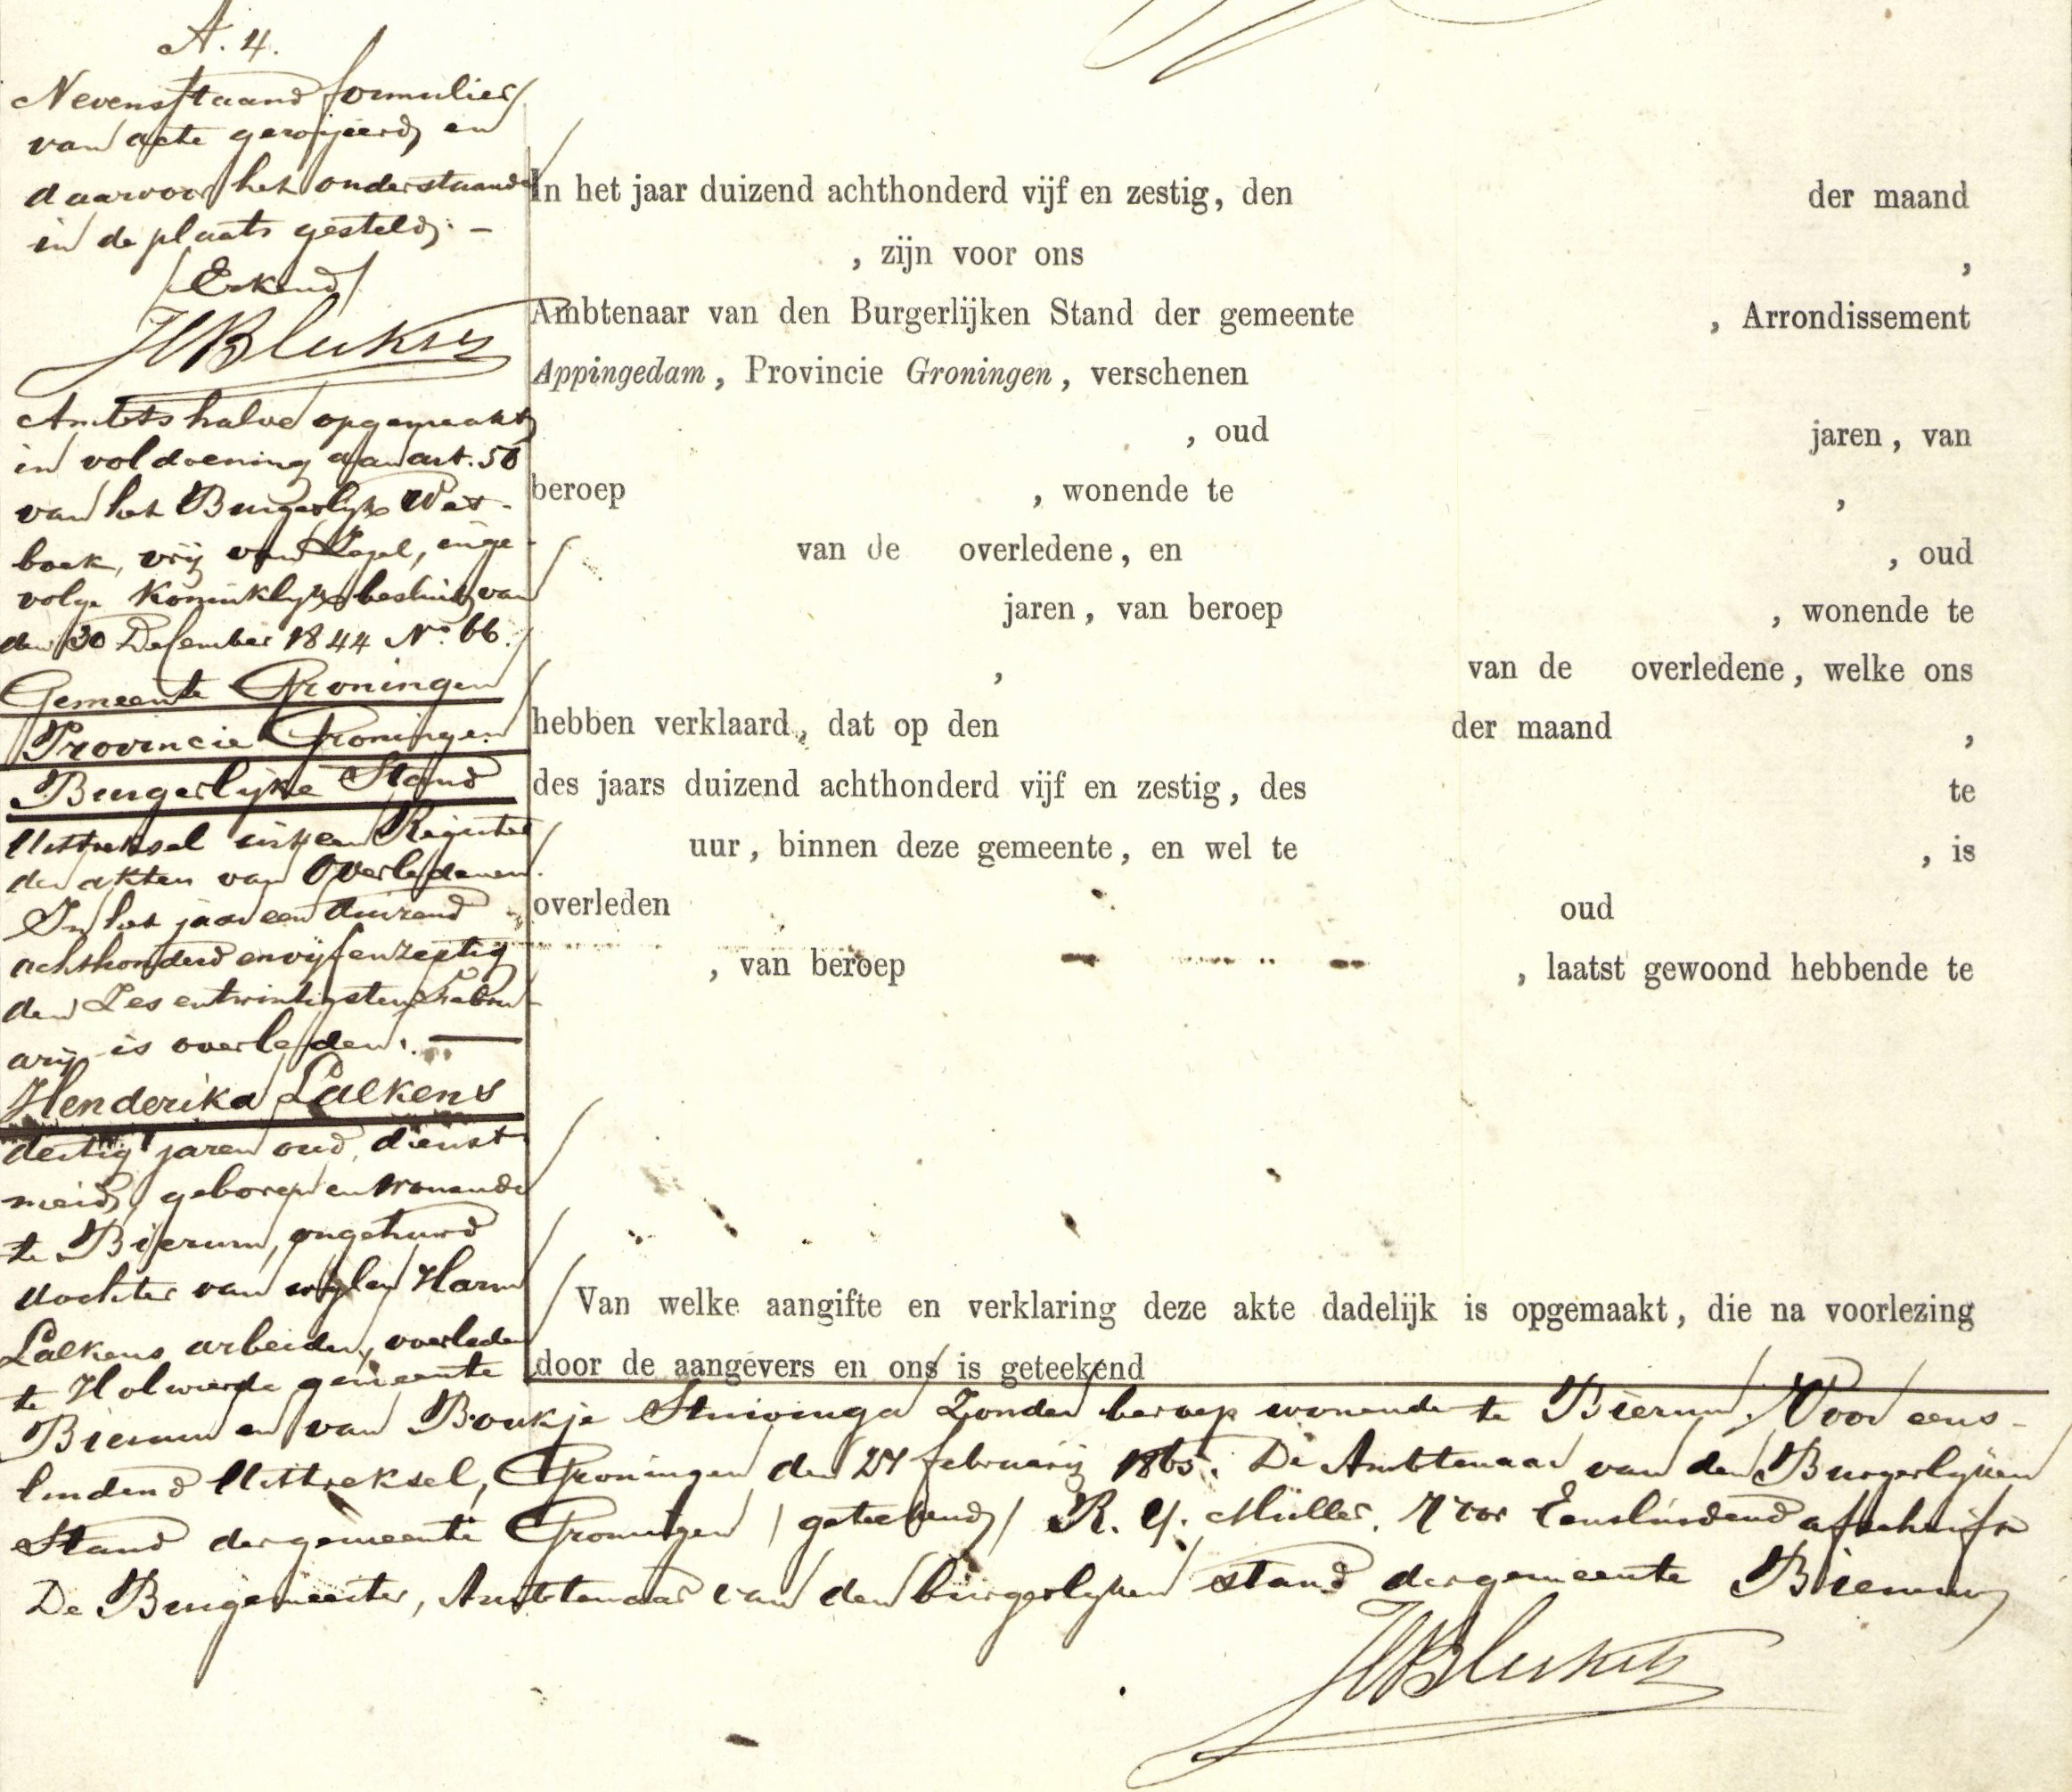 A. 4.
Nevenstaand formulier
van acte geroijeerd en
daarvoor het onderstaande
in de plaats gesteld. –
Erkend
HBleker
Ambtshalve opgemaakt
in voldoening aan art. 50
van het Burgerlijk Wet-
boek, vrij van Zegel, inge-
volge Koninklijk besluit van
den 30 December 1844 No. 66.
Gemeente Groningen
Provincie Groningen
Burgerlijke Stand
Uittreksel uit een Register
der akten van Overledenen.
In het jaar een duizend
achthonderd en vijf en zestig
den Zes en twintigsten Febru-
arij is overleden. —
Henderika Lalkens
dertig jaren oud, dienst
meid, geboren en wonende
te Bierum, ongehuwd
dochter van wijlen Harm
Lalkens arbeider, overleden
te Holwierde gemeente
In het jaar duizend achthonderd vijf en zestig, den der maand
, zijn voor ons ,
Ambtenaar van den Burgerlijken Stand der gemeente , Arrondissement
Appingedam, Provincie Groningen, verschenen
, oud jaren, van
beroep , wonende te ,
van de overledene, en , oud
jaren, van beroep , wonende te
, van de overledene, welke ons
hebben verklaard, dat op den der maand ,
des jaars duizend achthonderd vijf en zestig, des te
uur, binnen deze gemeente, en wel te , is
overleden oud
, van beroep , laatst gewoond hebbende te
Van welke aangifte en verklaring deze akte dadelijk is opgemaakt, die na voorlezing
door de aangevers en ons is geteekend
Bierum en van Boukje Stuivinga Zonder beroep wonende te Bierum. Voor eens-
luidend Uittreksel, Groningen den 27 februarij 1865. De Ambtenaar van den Burgerlijken
Stand der gemeente Groningen (geteekend) R. Müller. Voor Eensluidend afschrift
De Burgemeester, Ambtenaar van den burgerlijken stand der gemeente Bierum
HBleker